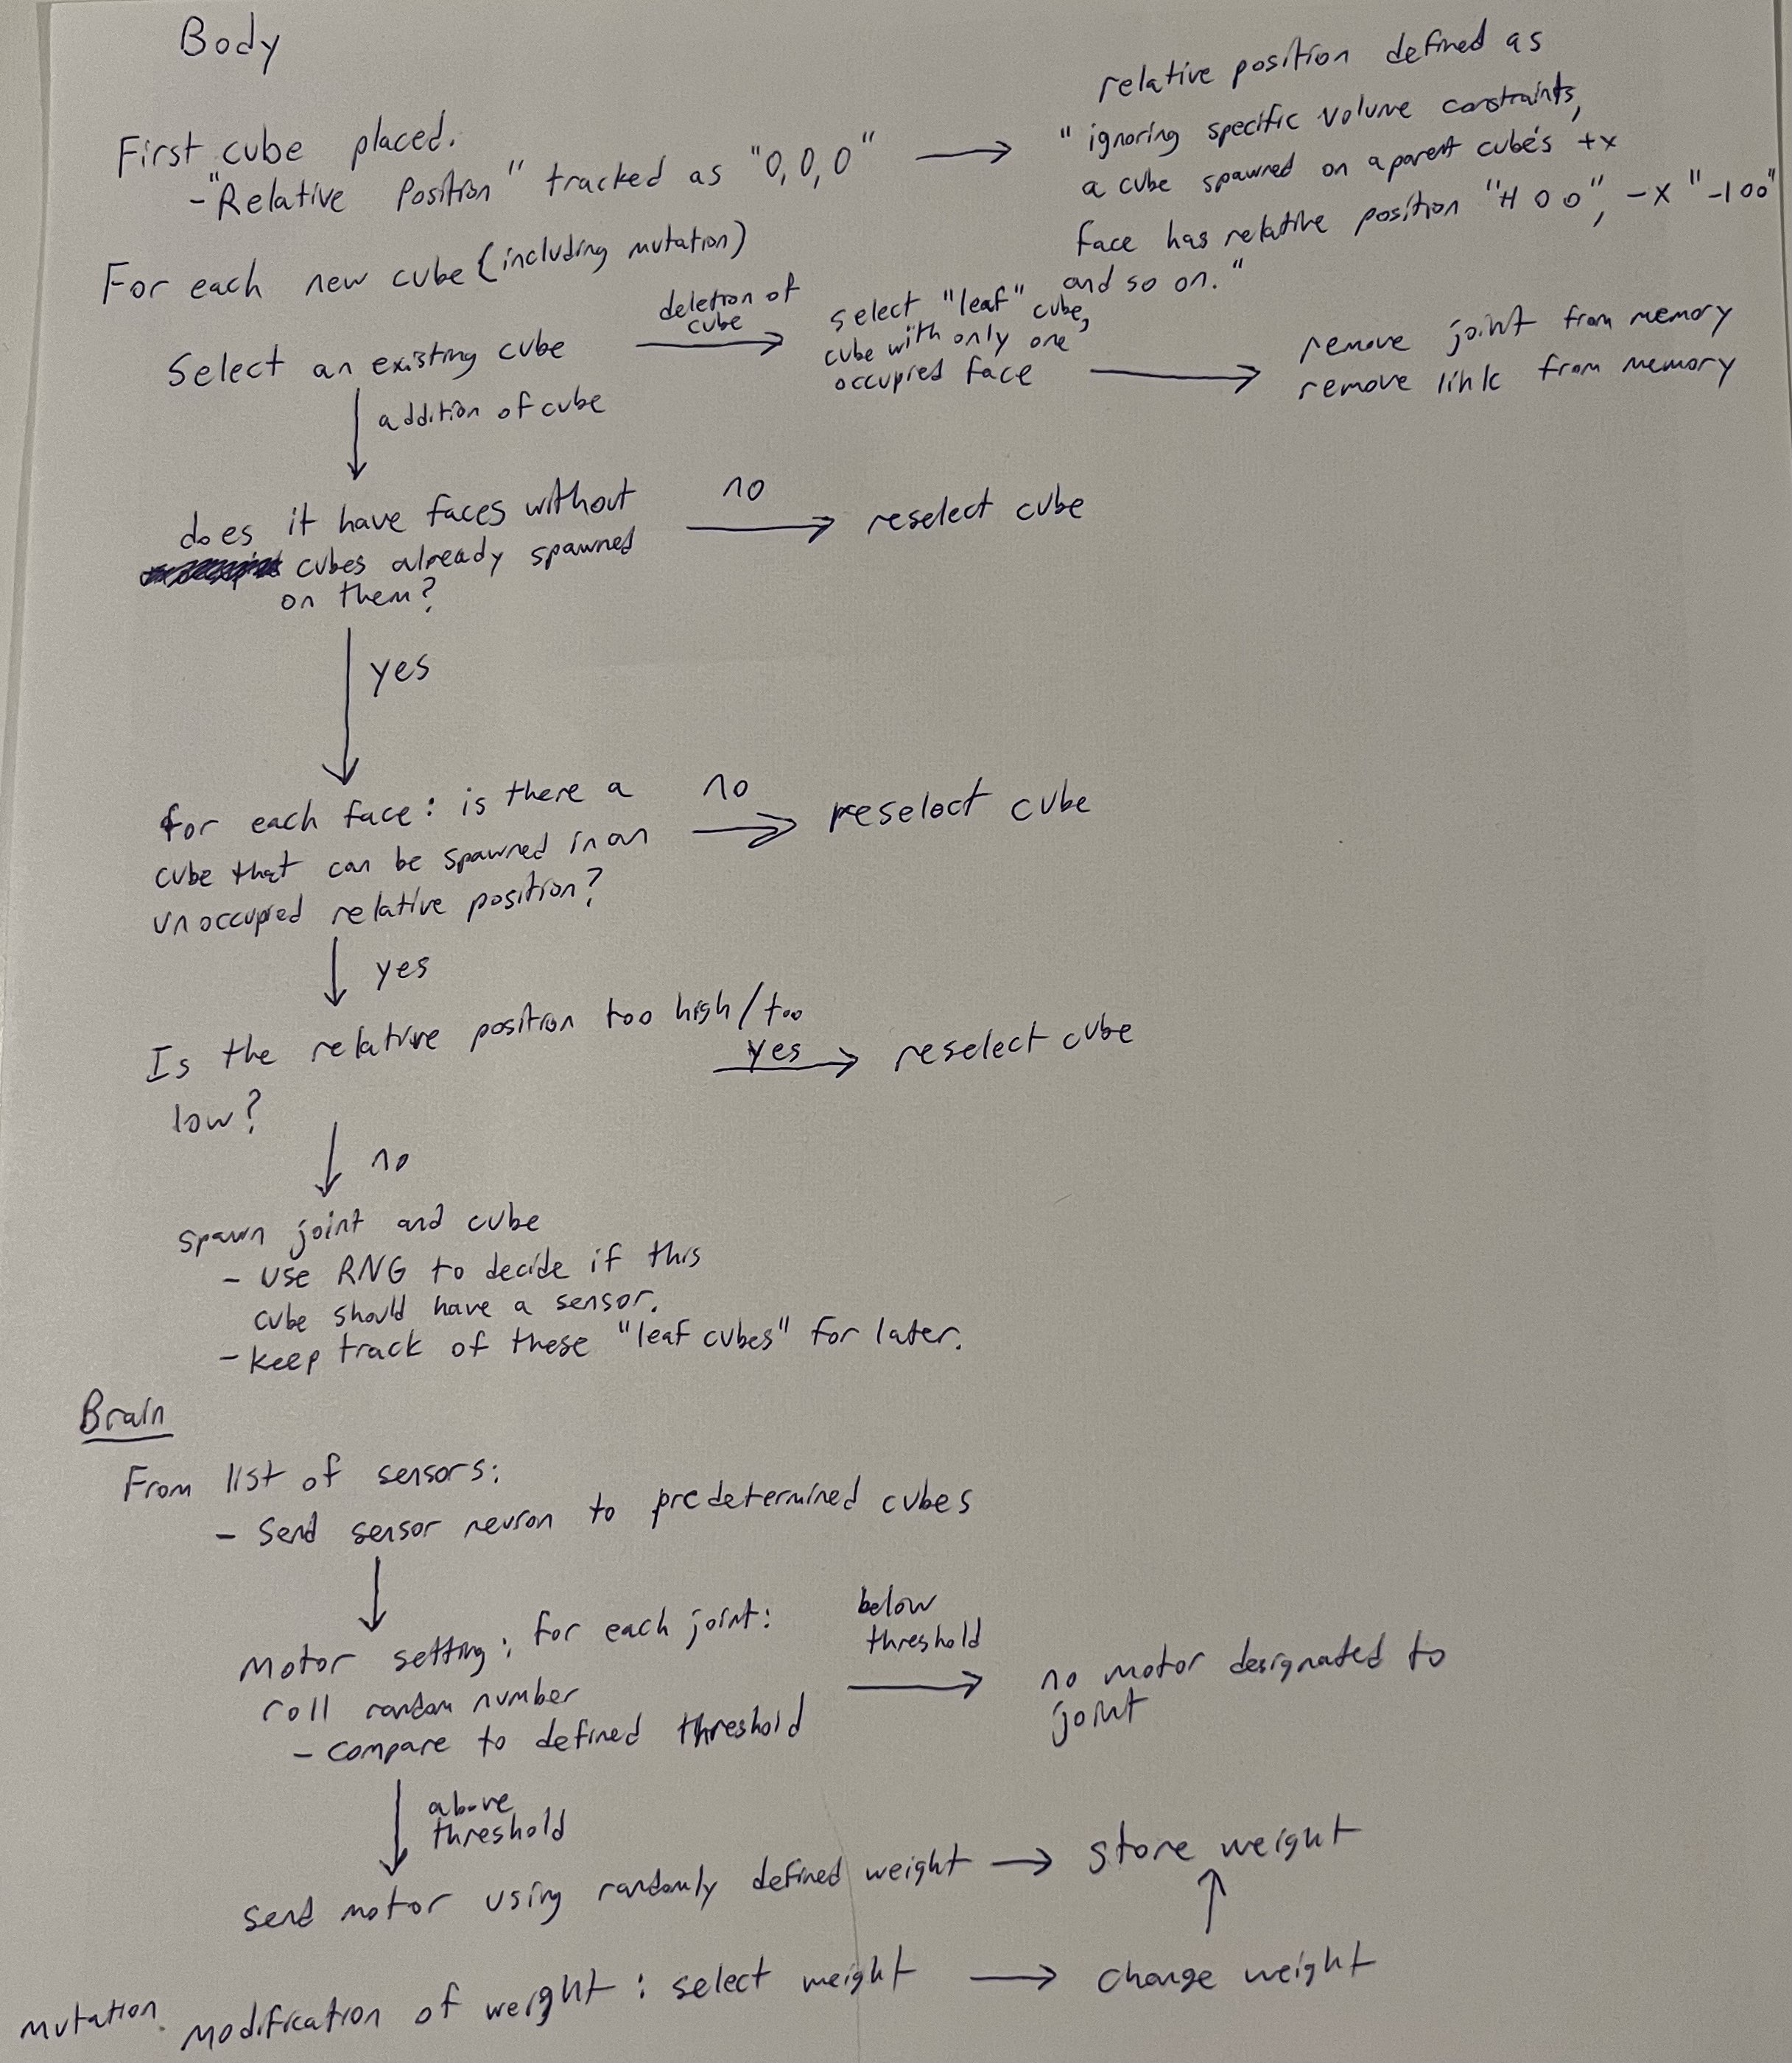 Body
First cube placed.
- "Relative Position" tracked as "0,0,0"
relative position defined as
"ignoring specific volume constraints,
a cube spawned on a parent cube's +x
face has relative position "+1 0 0", -x "-1 0 0"
and so on."
For each new cube (including mutation)
Select an existing cube
deletion of
cube
select "leaf" cube,
cube with only one
occupied face
remove joint from memory
remove link from memory
addition of cube
does it have faces without
cubes already spawned
on them?
no
reselect cube
yes
for each face: is there a
cube that can be spawned in an
unoccupied relative position?
no
reselect cube
yes
Is the relative position too high/too
low?
yes
reselect cube
no
spawn joint and cube
- use RNG to decide if this
cube should have a sensor.
- keep track of these "leaf cubes" for later.
Brain
From list of sensors:
- Send sensor neuron to predetermined cubes
Motor setting: for each joint:
roll random number
- compare to defined threshold
below
threshold
no motor designated to
joint
above
threshold
send motor using randomly defined weight
store weight
mutation. modification of weight: select weight
change weight